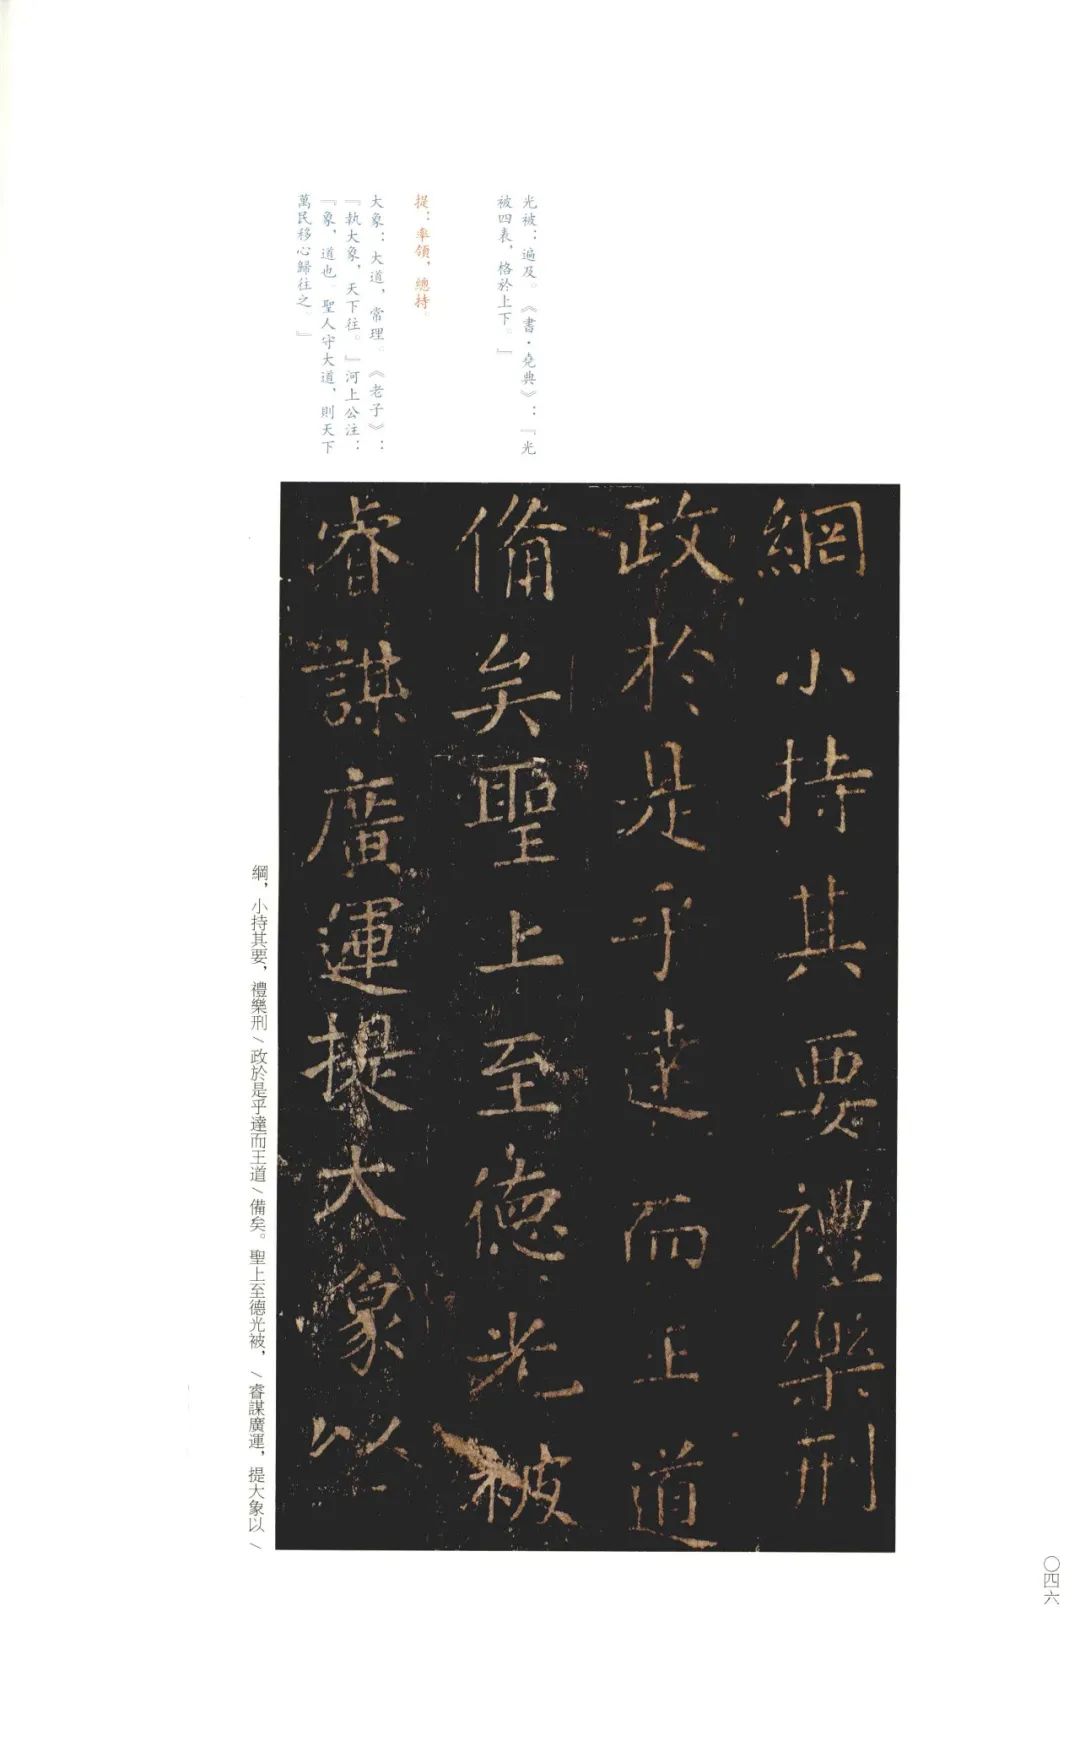 光被：遍及。《書·堯典》：『光
被四表，格於上下。』
提：率領，總持。
大象：大道，常理。《老子》：
『執大象，天下往。』河上公注：
『象，道也。聖人守大道，則天下
萬民移心歸往之。』
綱小持其要禮樂刑
政於是乎達而王道
備矣聖上至德光被
睿謀廣運提大象以
綱，小持其要，禮樂刑\政於是乎達而王道\備矣。聖上至德光被，\睿謀廣運，提大象以\
〇四六